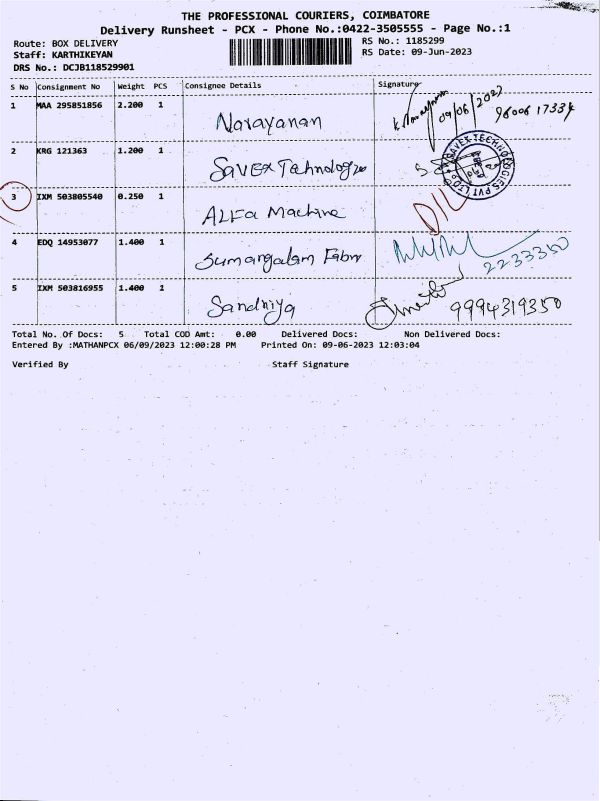 THE PROFESSIONAL COURIERS, COIMBATORE
Delivery Runsheet - PCX - Phone No.:0422-3505555 - Page No.:1
Route: BOX DELIVERY RS No.: 1185299
Staff: KARTHIKEYAN RS Date: 09-Jun-2023
DRS No.: DCJB118529901
S No Consignment No Weight PCS Consignee Details Signature
1 MAA 295851856 2.200 1 Narayanan 09/06/2023
2 KRG 121363 1.200 1 Savex Tahnologie SAVEX TECHNOLOGIES PVT LTD
3 IXM 503805540 0.250 1 ALFa Machine D/L
4 EDQ 14953077 1.400 1 Sumangalam Fabri 2233350
5 IXM 503816955 1.400 1 Sandhiya 9994319350
Total No. Of Docs: 5 Total COD Amt: 0.00 Delivered Docs: Non Delivered Docs:
Entered By :MATHANPCX 06/09/2023 12:00:28 PM Printed On: 09-06-2023 12:03:04
Verified By Staff Signature